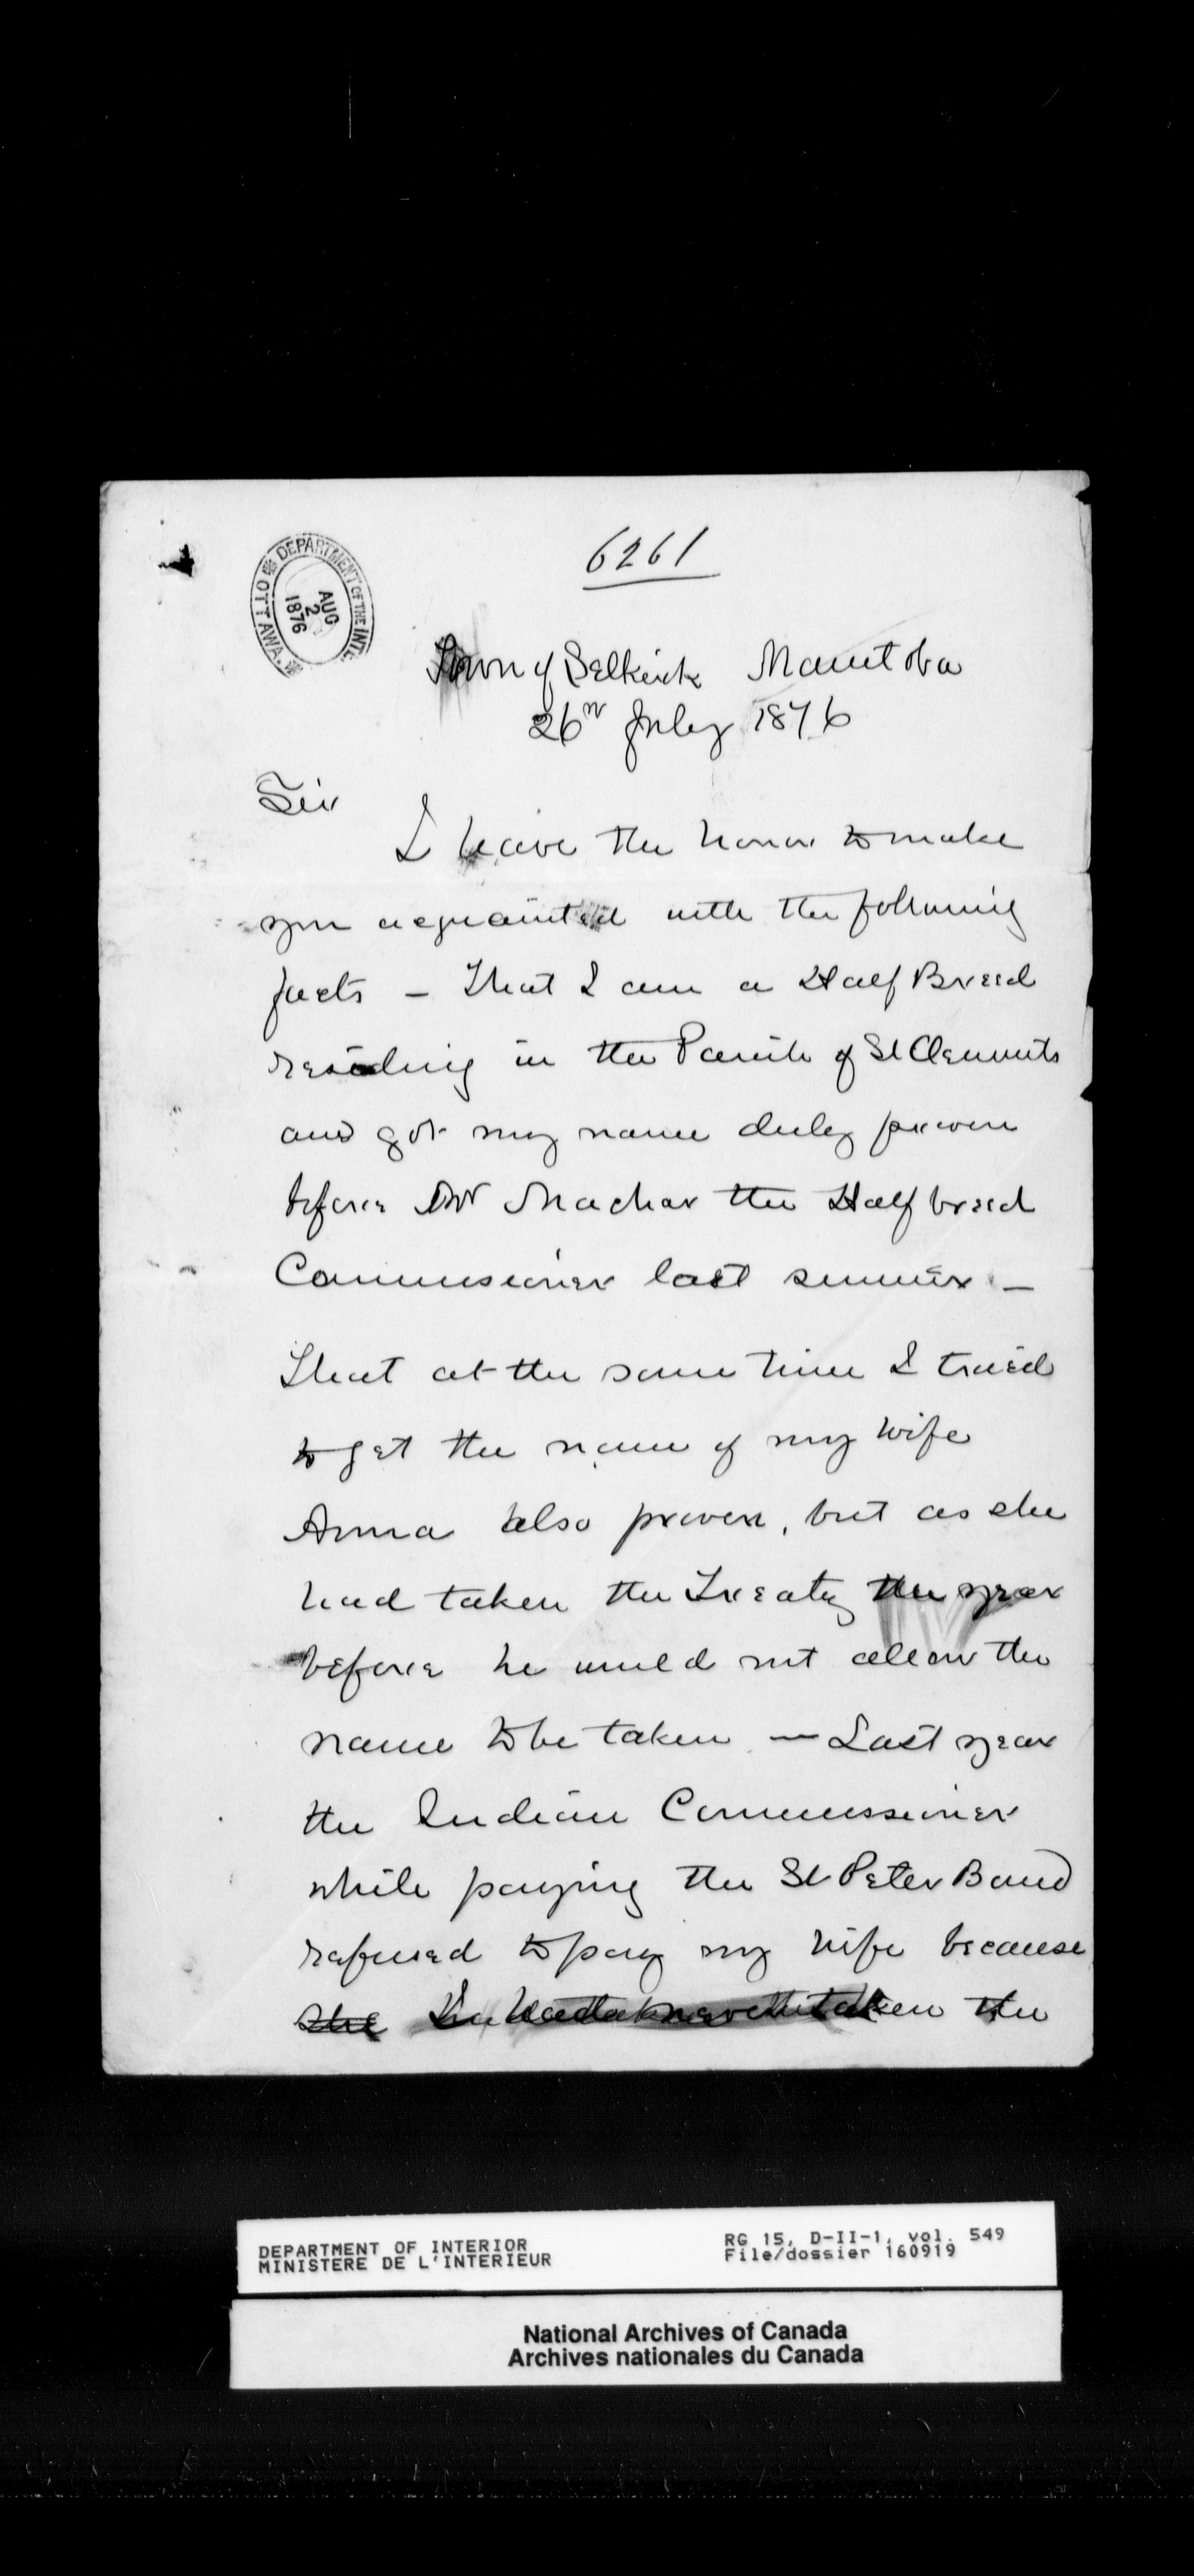 6261
DEPARTMENT OF THE INTE.
AUG
2
1876
OTTAWA.
Town of Selkirk Manitoba
26th July 1876
Sir
I have the honor to make
you acquainted with the following
facts – That I am a Half Breed
residing in the Parish of St Clements
and got my name duly proven
before Mr Machar the Half breed
Commissioner last summer –
That at the same time I tried
to get the name of my wife
Anna also proven, but as she
had taken the Treaty the year
before he would not allow the
name to be taken – Last year
the Indian Commissioner
while paying the St Peter Band
refused to pay my wife because
she taken the
DEPARTMENT OF INTERIOR
MINISTERE DE L'INTERIEUR
RG 15, D-II-1, vol. 549
File/dossier 160919
National Archives of Canada
Archives nationales du Canada